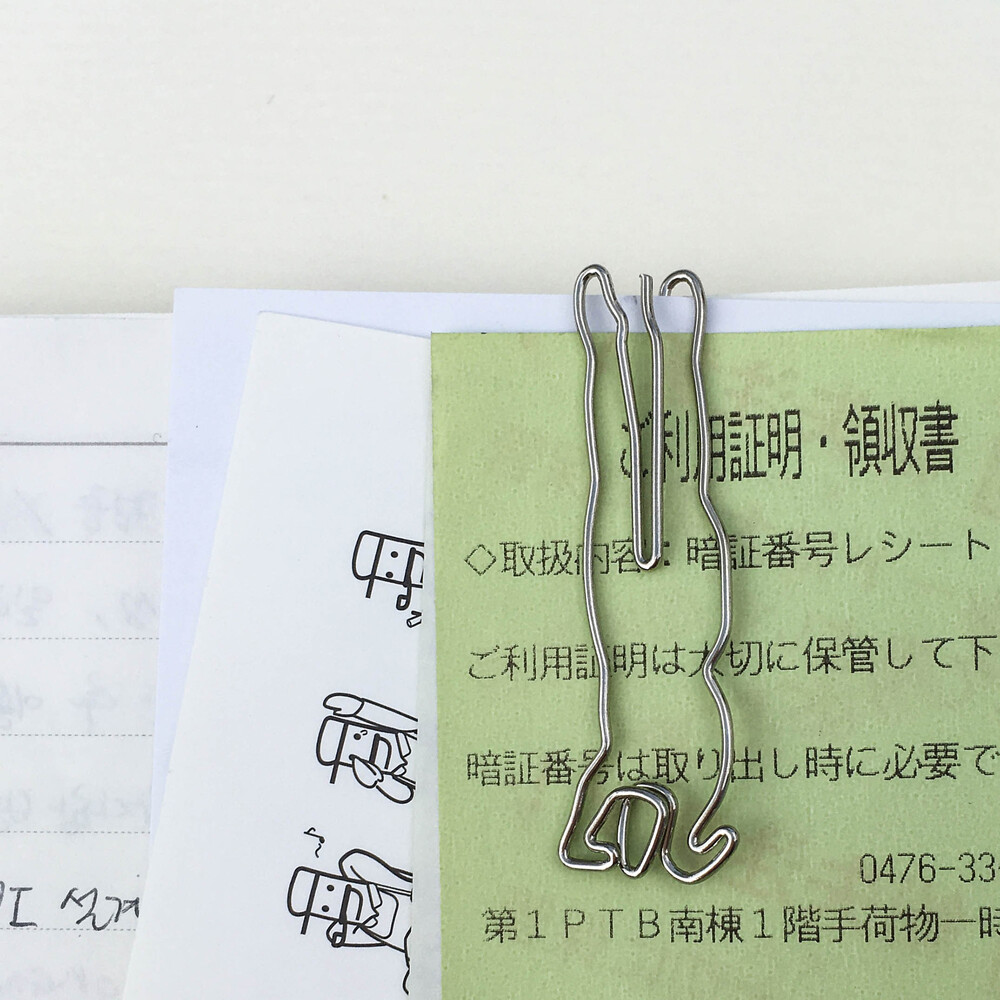 ご利用証明・領収書
◇取扱内容：暗証番号レシート
ご利用証明は大切に保管して下
暗証番号は取り出し時に必要で
0476-33-
第１ＰＴＢ南棟１階手荷物一時